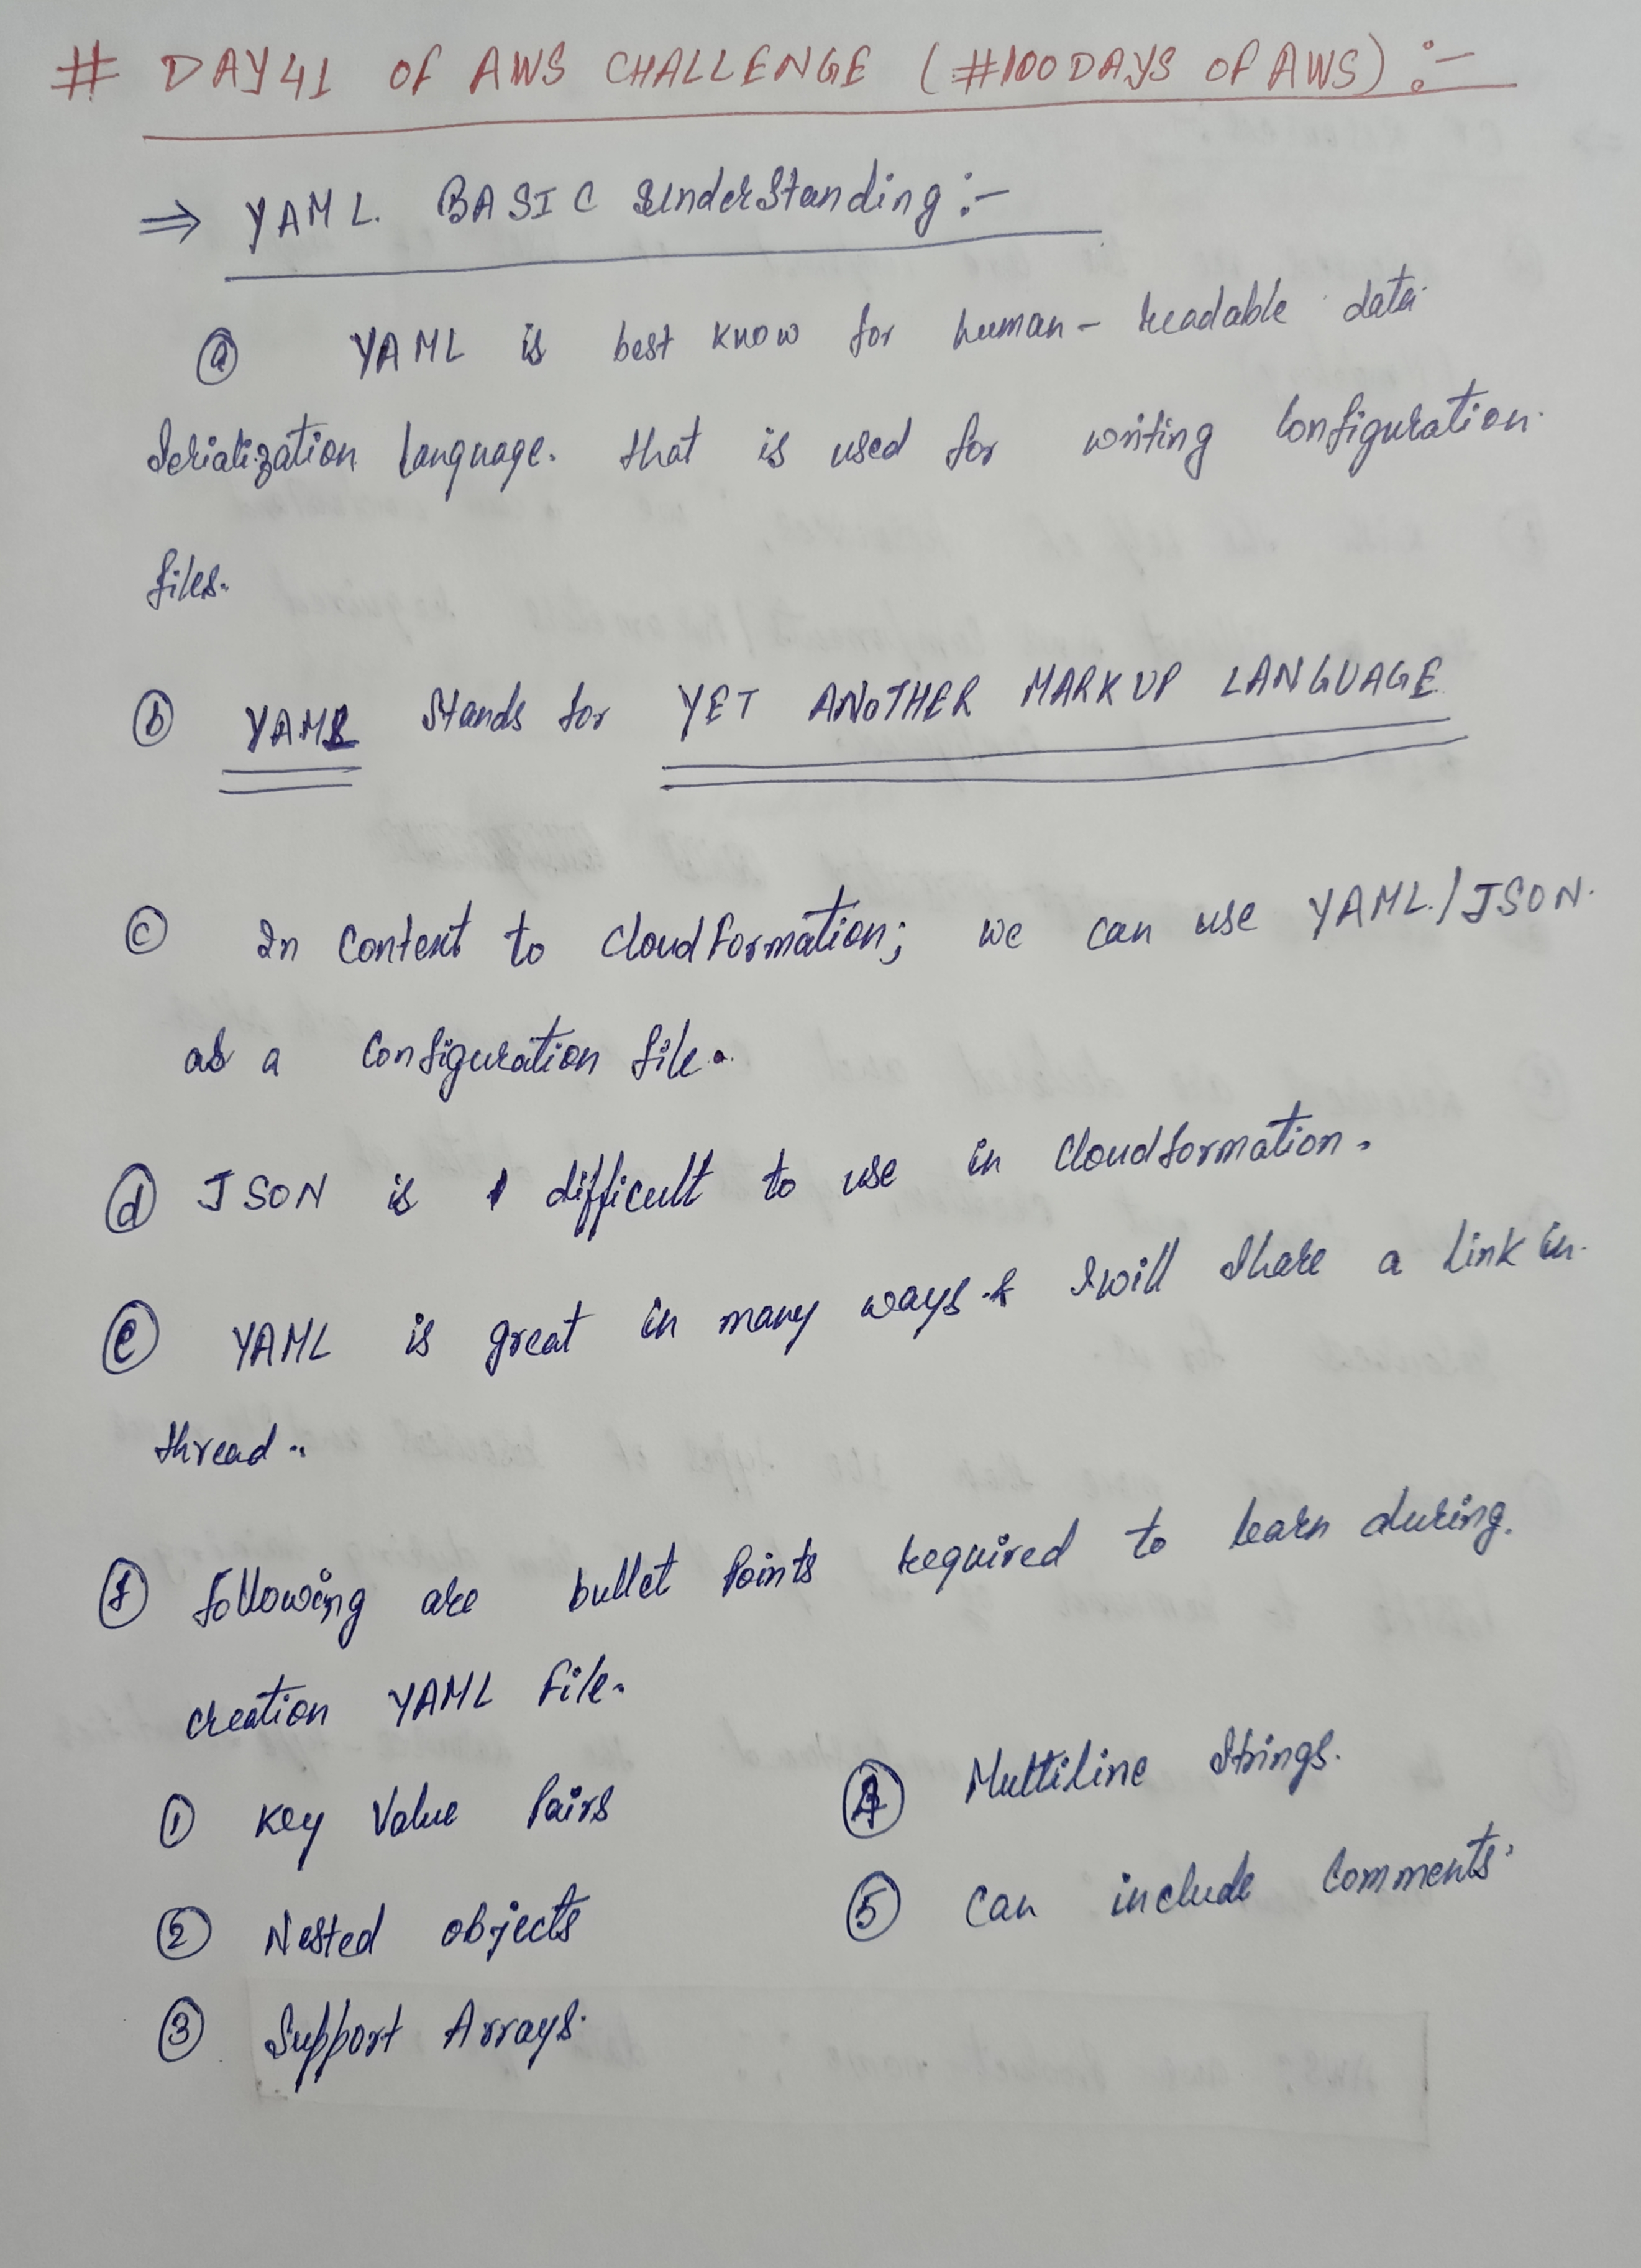 # DAY41 OF AWS CHALLENGE (#100DAYS OF AWS) :-
⇒ YAML BASIC Understanding :-
(a) YAML is best know for human-readable data
Serialization language. that is used for writing Configuration
files.
(b) YAML Stands for YET ANOTHER MARKUP LANGUAGE
(c) In Content to CloudFormation; we can use YAML/JSON.
as a Configuration file.
(d) JSON is difficult to use in Cloudformation.
(e) YAML is great in many ways & I will Share a link in
thread..
(f) following are bullet Points required to learn during
creation YAML file.
(1) Key Value Pairs
(2) Nested objects
(3) Support Arrays.
(4) Multiline Strings.
(5) Can include Comments.